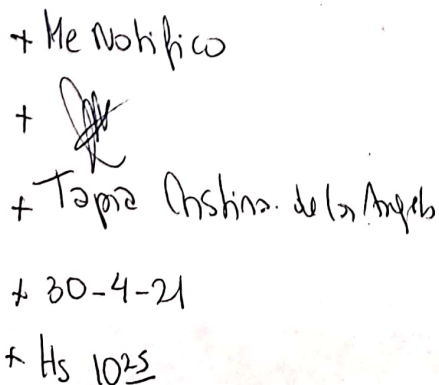 + Me Notifico
+
+ Tapia Cristina. de los Angeles
+ 30-4-21
+ Hs 10 25